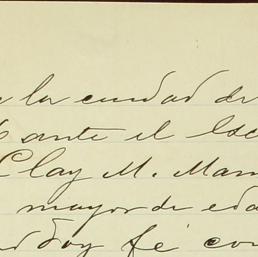 la ciudad de
ante el Esc
Clay M. Mam
mayor de eda
doy fé con